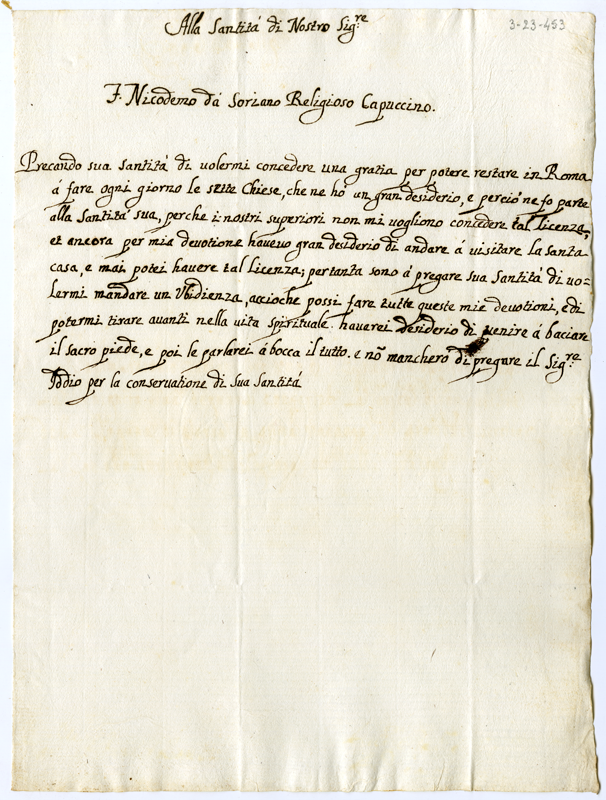 Alla Santità di Nostro Sig:re
3-23-453
F. Nicodemo dá Soriano Religioso Capuccino.
Precando sua Santitá di uolermi concedere una gratia per potere restare in Roma
á fare ogni giorno le sette Chiese, che ne hó un gran desiderio, e perció ne fo parte
alla Santitá sua, perche i nostri superiori non mi uogliono concedere tal licenza,
et ancora per mia deuotione haueuo gran desiderio di andare á uisitare la santa
casa, e mai potei hauere tal Licenza; pertanta sono á pregare sua Santitá di uo=
lermi mandare un Vbidienza, accioche possi fare tutte queste mie deuotioni, e di
potermi tirare auanti nella uita spirituale. hauerei desiderio di uenire á baciare
il sacro piede, e poi le parlarei á bocca il tutto. e nõ mancheró di pregare il Sig:re
Iddio per la conseruatione di Sua Santitá